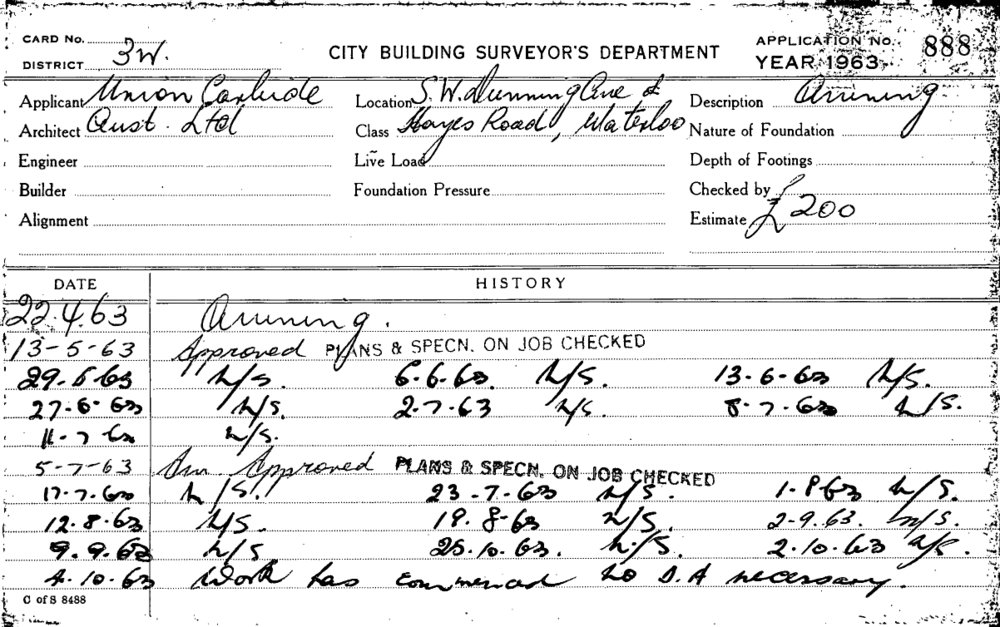 CARD No.
DISTRICT 3W.
CITY BUILDING SURVEYOR'S DEPARTMENT
APPLICATION No. 888
YEAR 1963
Applicant Union Carbide Location S.W. Dunning Ave & Description Awning.
Architect Aust. Ltd Class Hayes Road, Waterloo Nature of Foundation
Engineer Live Load Depth of Footings
Builder Foundation Pressure Checked by
Alignment Estimate £200
DATE HISTORY
22.4.63 Awning.
13-5-63 Approved PLANS & SPECN. ON JOB CHECKED
29.5.63 N/S. 6.6.63. N/S. 13-6-63 N/S.
27-6-63 N/S. 2.7.63 N/S. 8-7-63 N/S.
11-7-63 N/S.
5-7-63 Am. Approved PLANS & SPECN. ON JOB CHECKED
17.7.63 N/S. 23-7-63 N/S. 1-8-63 N/S.
12.8.63 N/S. 19.8-63 N/S. 2-9.63. N/S.
9.9.63 N/S. 25.10.63. N/S. 2.10.63 N/S.
4.10.63 Work has commenced no D.A necessary.
C of S 8488